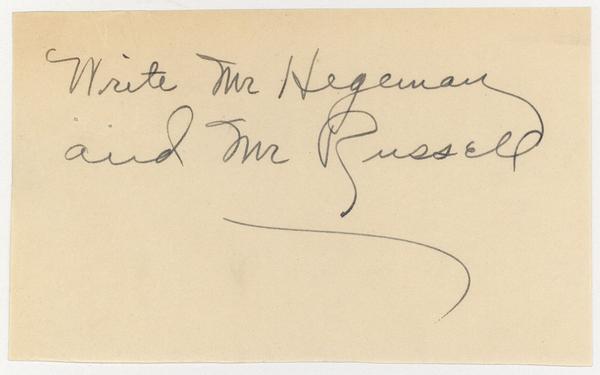 Write Mr Hegeman
and Mr Russell